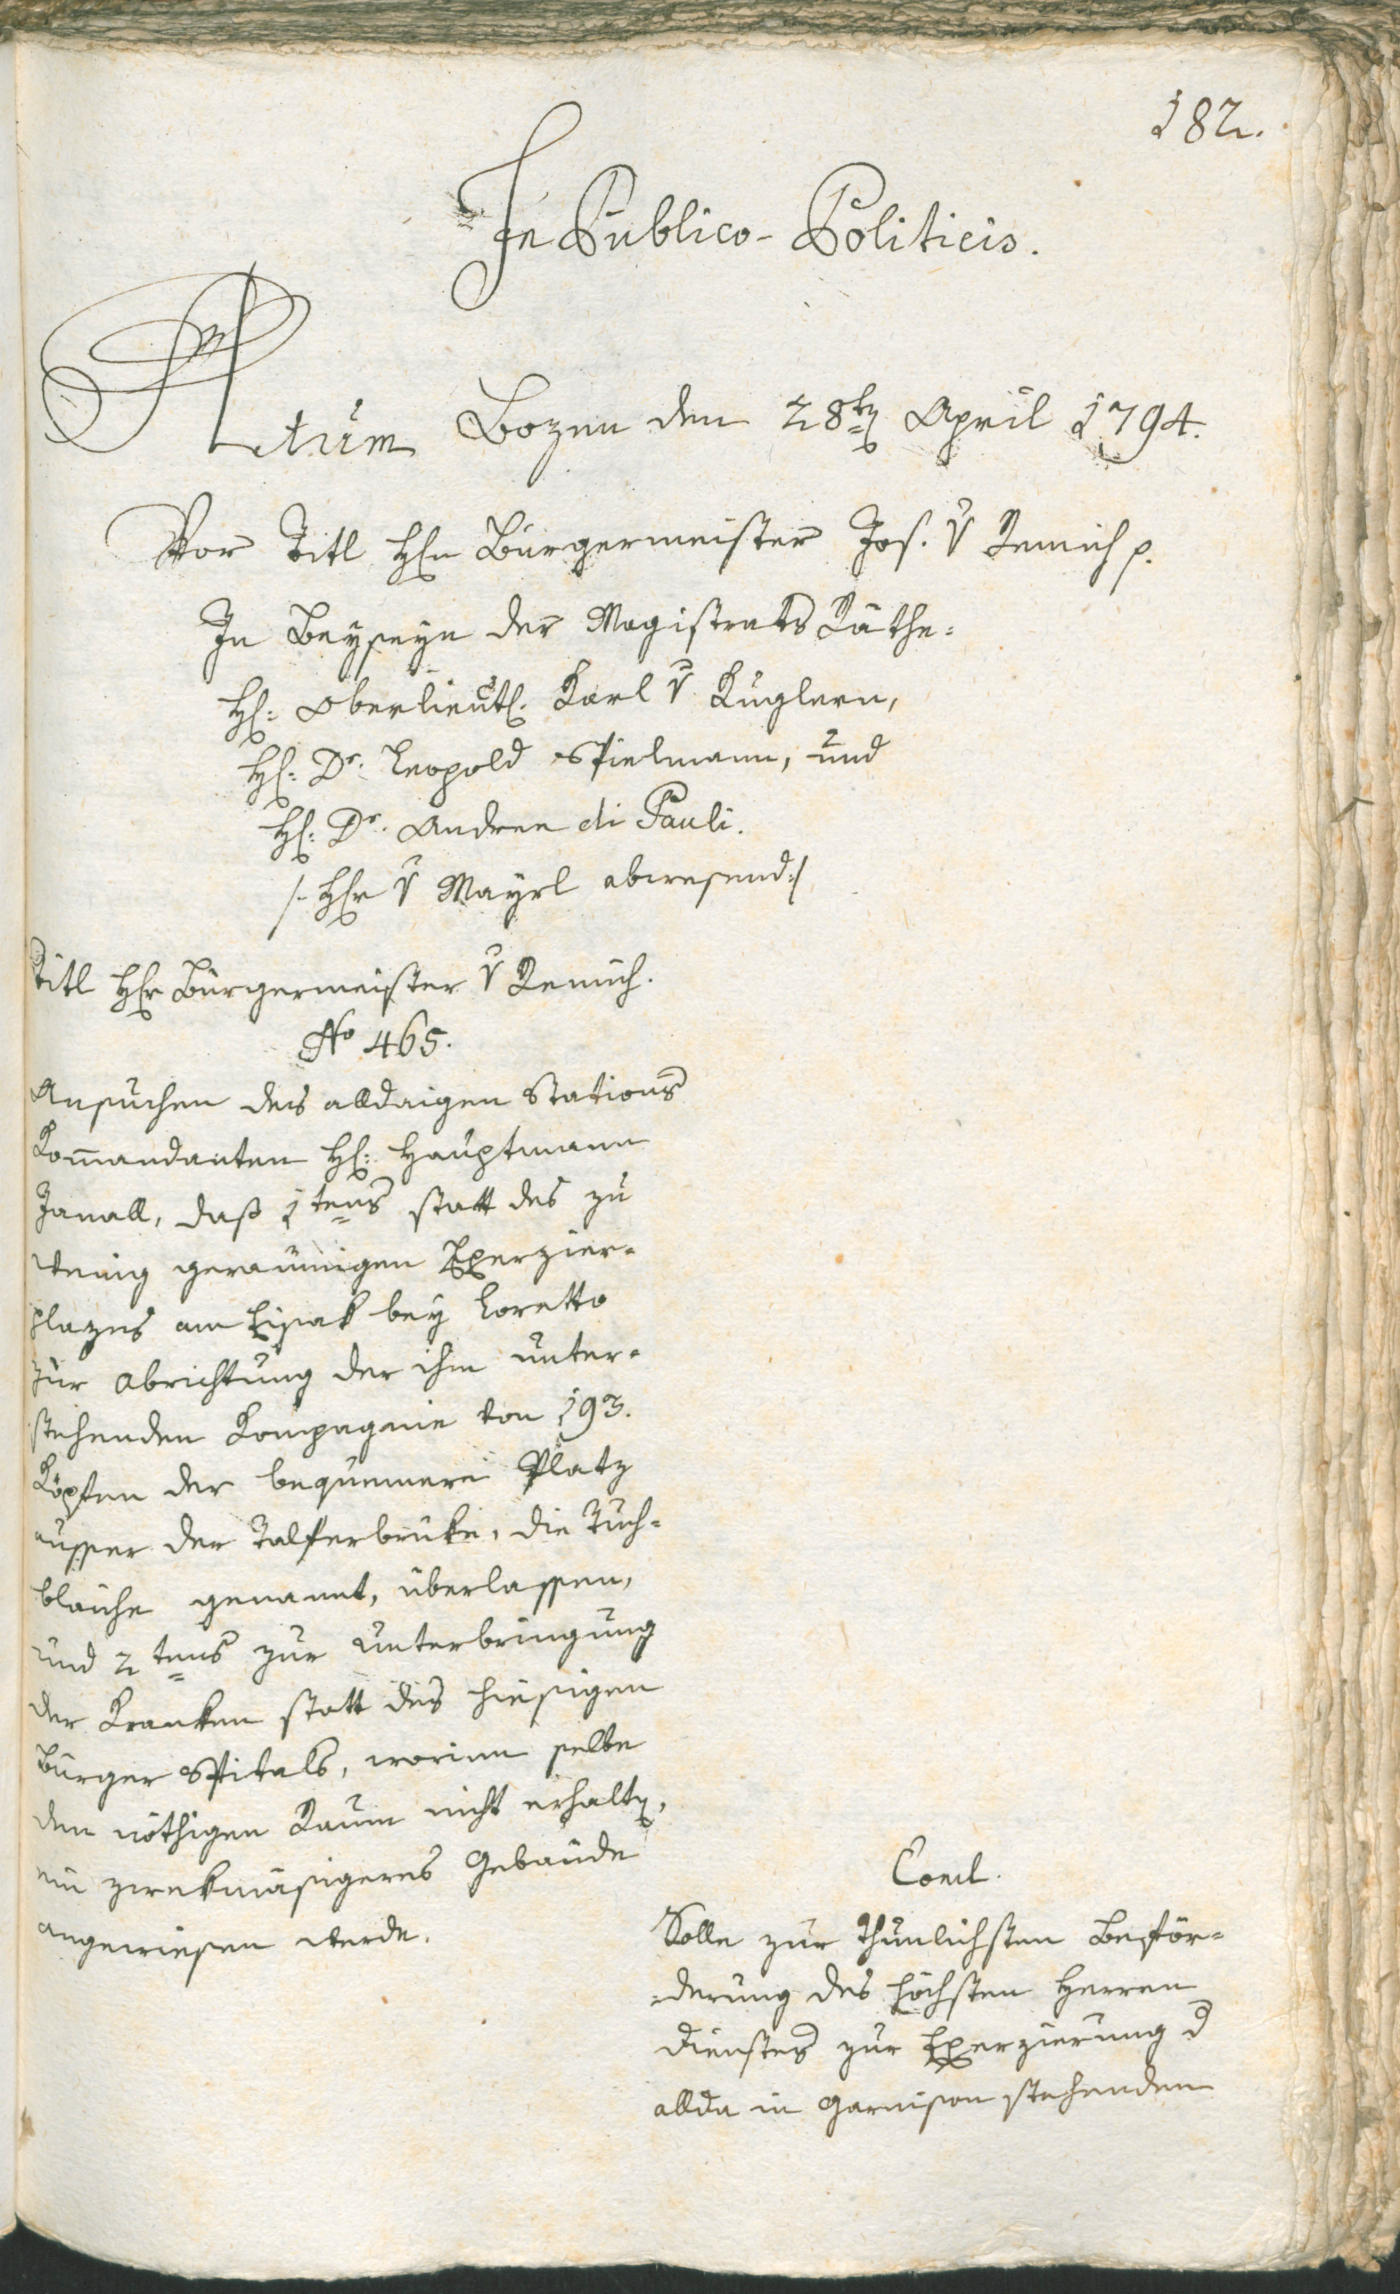 182.
In Publico-Politicis.
Actum Bozen den 28ten April 1794.
Vor Titl Hhn Bürgermeister Jos. v Remich p.
In Beyseyn der Magistrats Räthe:
H: Oberlieut. Karl v Kuglern,
H: Dr. Leopold Spielmann, und
H: Dr. Andree di Pauli.
/: Hhr v Mayrl abwesend :/
Titl Hhr Bürgermeister v Remich.
No 465.
Ansuchen des alldaigen Stations
Kom̄andanten H: Hauptmann
Janall, daß 1tens statt des zu
wenig geraumigen Exerzier-
plazes am Eisak bey Loretto
zur Abrichtung der ihm unter-
stehenden Kompagnie von 193.
Köpfen der bequemere Platz
ausser der Talferbruke, die Tuch-
blaiche genannt, überlassen,
und 2tens zur Unterbringung
der Kranken statt des hiesigen
Burger Spitals, worinn selbe
den nöthigen Raum nicht erhalten,
ein zwekmäsigeres Gebaude
angewiesen werde.
Concl.
Solle zur thunlichsten Beför-
derung des höchsten Herren
Dienstes zur Exerzierung d
allda in Garnison stehenden